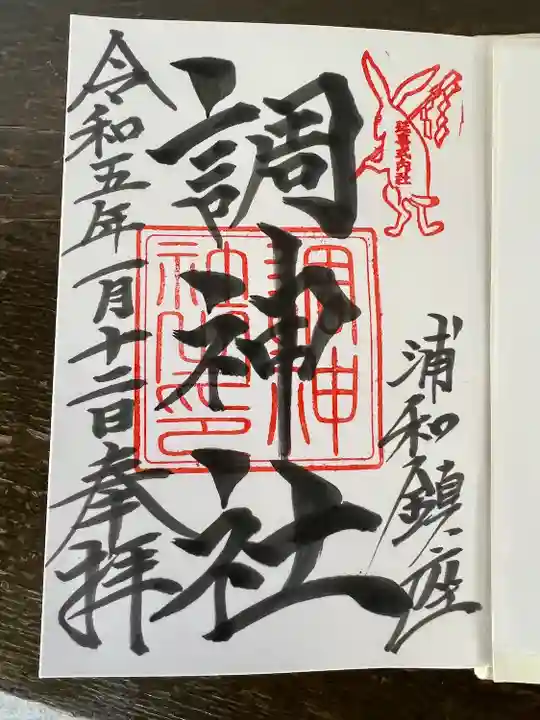 延喜式内社
浦和鎮座
調神社
令和五年一月十二日奉拝